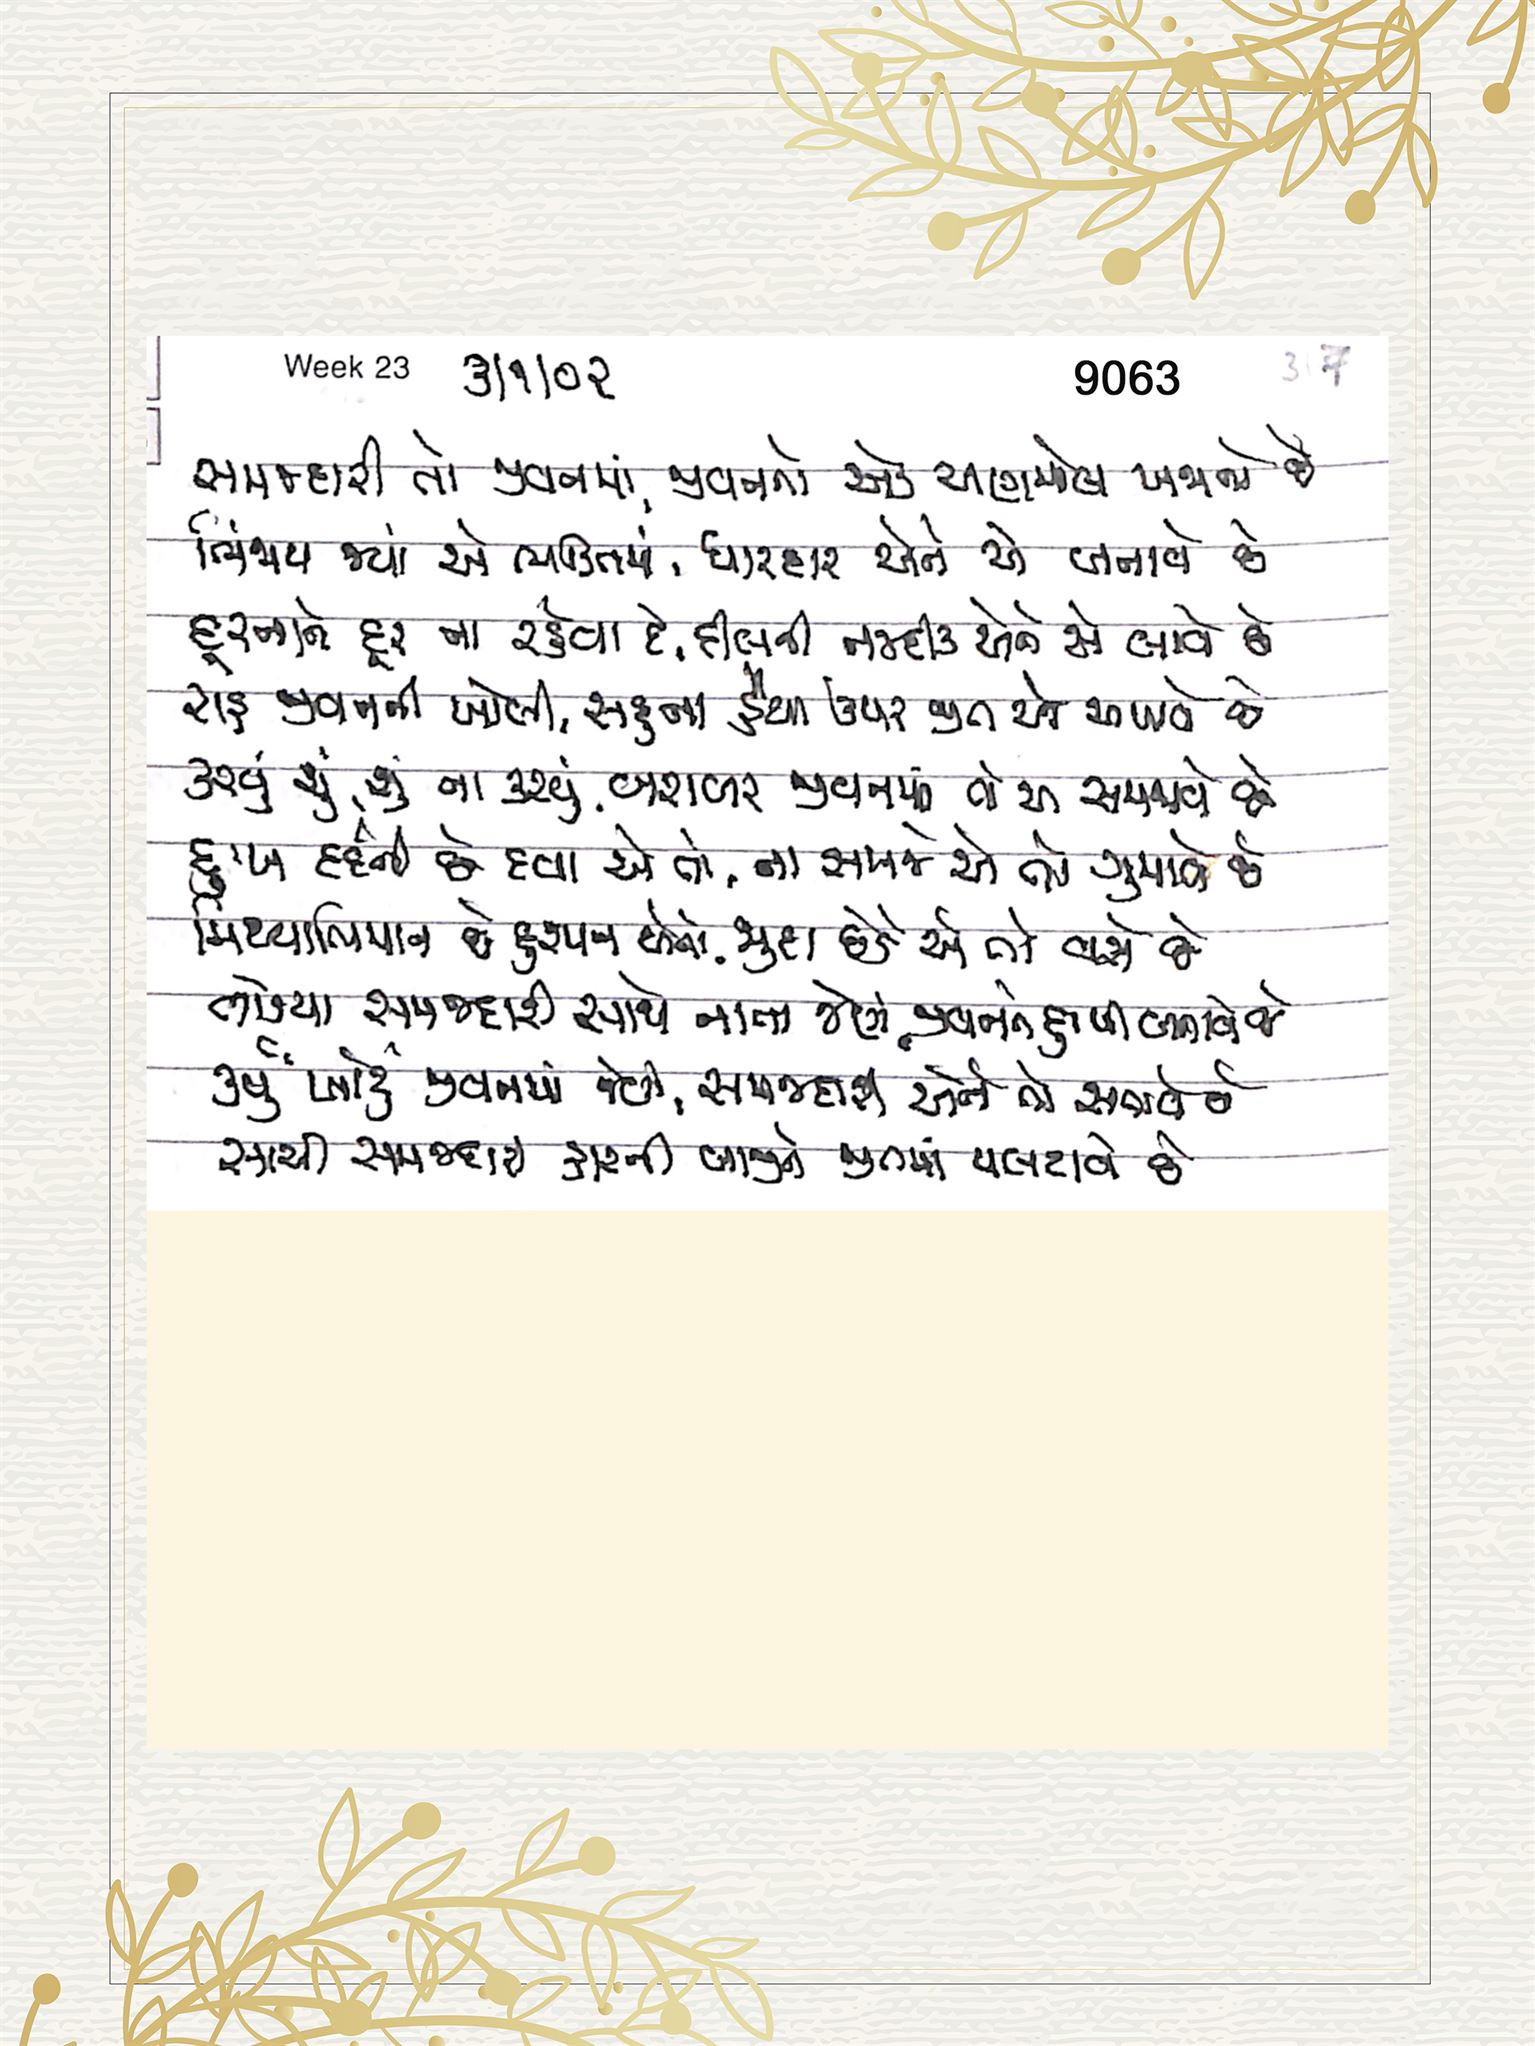 Week 23 3/1/02 9063
સમજદારી તો જીવનમાં, જીવનનો એક અણમોલ ખજાનો છે
ભિંજાય જ્યાં એ ભક્તિમાં, ધારદાર એને એ બનાવે છે
દૂરનાને દૂર ના રહેવા દે, દીલની નજદીક એને એ લાવે છે
રાહ જીવનની ખોલી, સહુના હૈયા ઉપર જીત એ અપાવે છે
કરવું શું, શું ના કરવું, બરાબર જીવનમાં તે એ સમજાવે છે
દુઃખ દર્દની છે દવા એ તો, ના સમજે એ તો ગુમાવે છે
મિથ્યાભિમાન છે દુશ્મન એનો, જુદા છેડે એ તો વસે છે
જોડયા સમજદારી સાથે નાતા જેણે, જીવનને સુખી બનાવે છે
કર્યું ખોટું જીવનમાં જેણે, સમજદારી એને તો સતાવે છે
સાચી સમજદારી હારની બાજીને જીતમાં પલટાવે છે